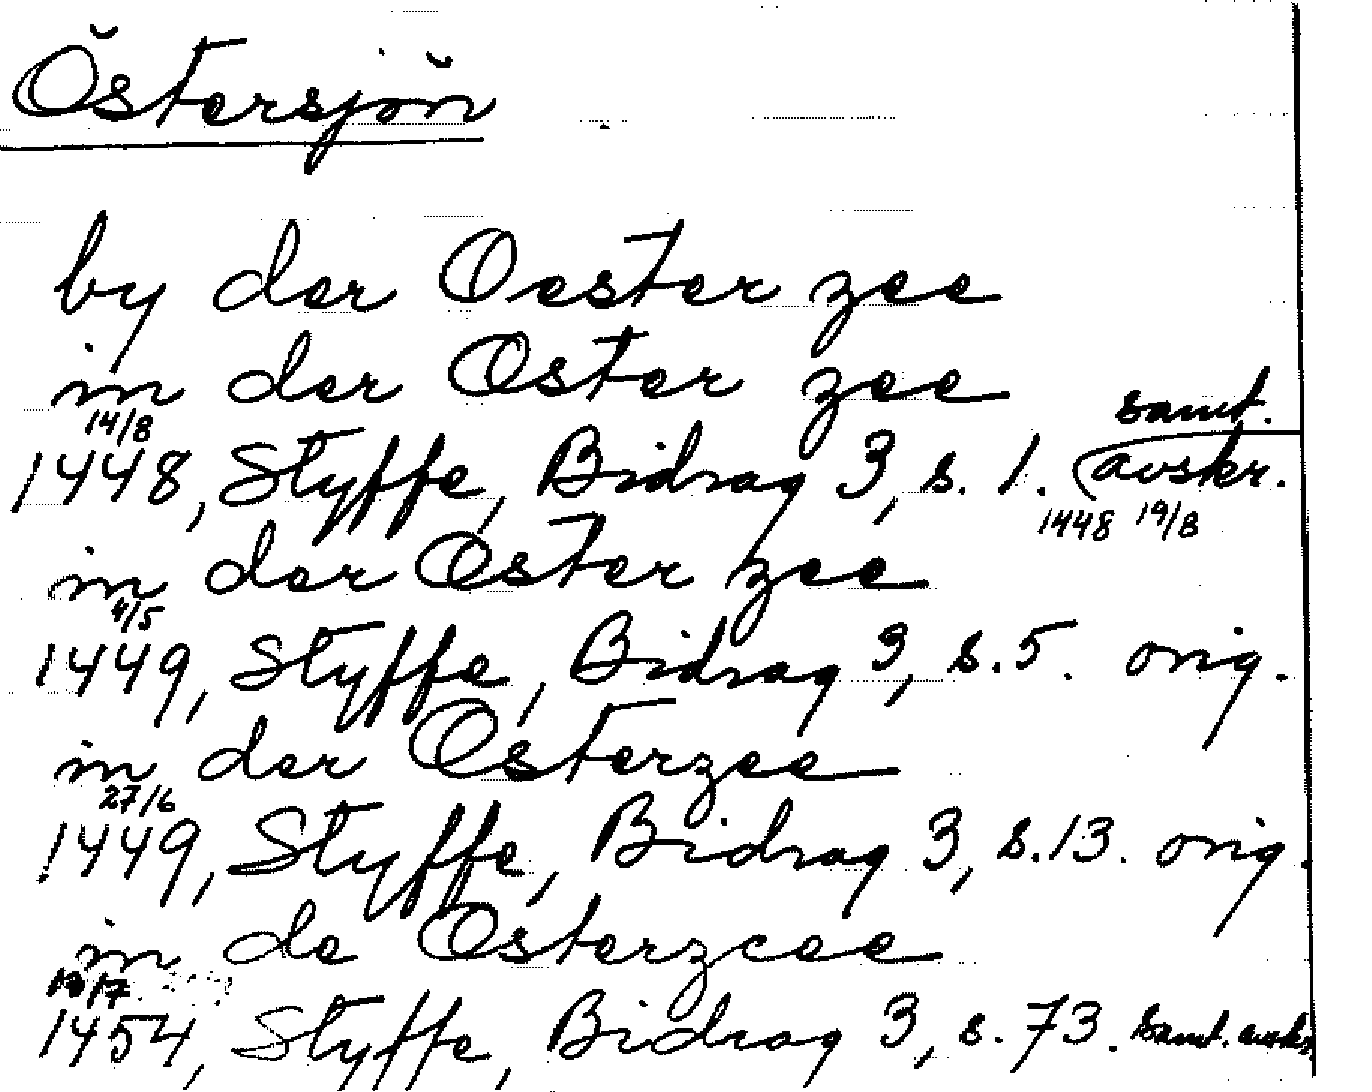 Östersjön
by der Oester zee
in der Oster zee
14/8 samt.
1448, Styffe, Bidrag 3, s. 1. avskr.
1448 19/8
in der Oster zee
4/5
1449, Styffe, Bidrag 3, s. 5. orig.
in der Osterzee
27/6
1449, Styffe, Bidrag 3, s. 13. orig.
in de Osterzcee
/7
1454, Styffe, Bidrag 3, s. 73. samt. avskr.